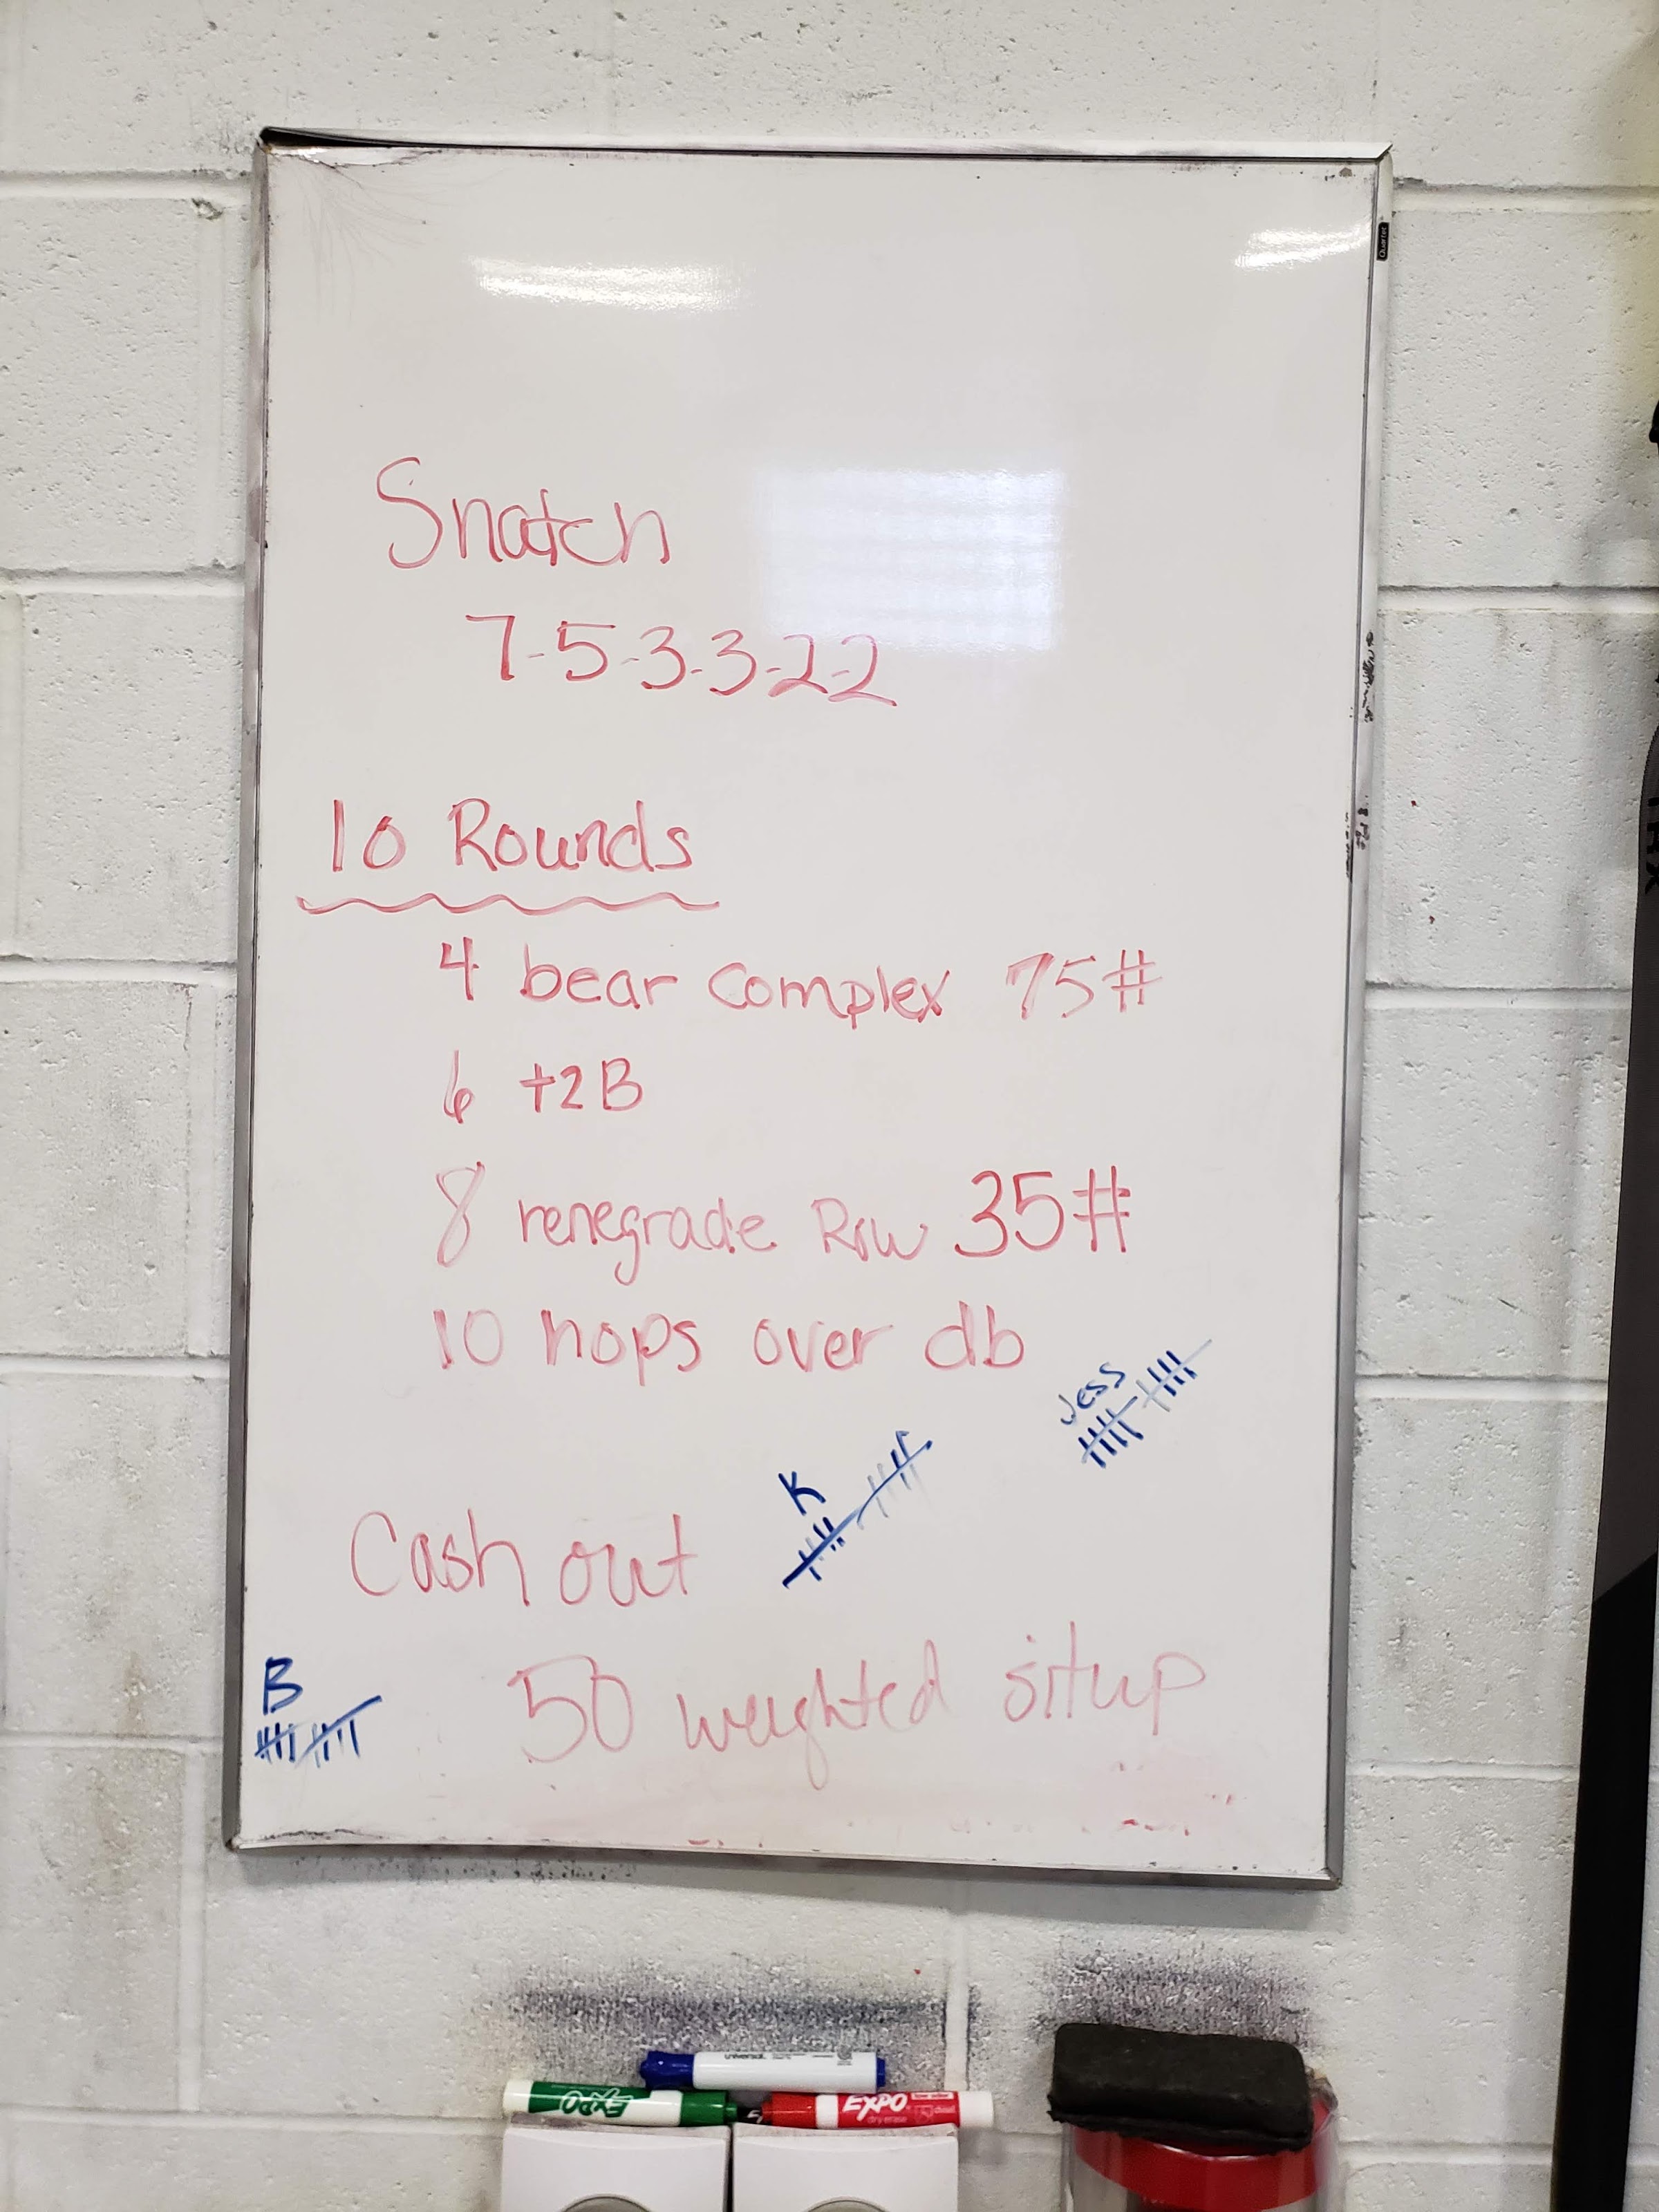 Quartet
Snatch
7-5-3-3-2-2
10 Rounds
4 bear complex 75#
6 t2B
8 renegrade Row 35#
10 hops over db
Jess
K
Cash out
B
50 weighted situp
universal
EXPO
EXPO
dry erase